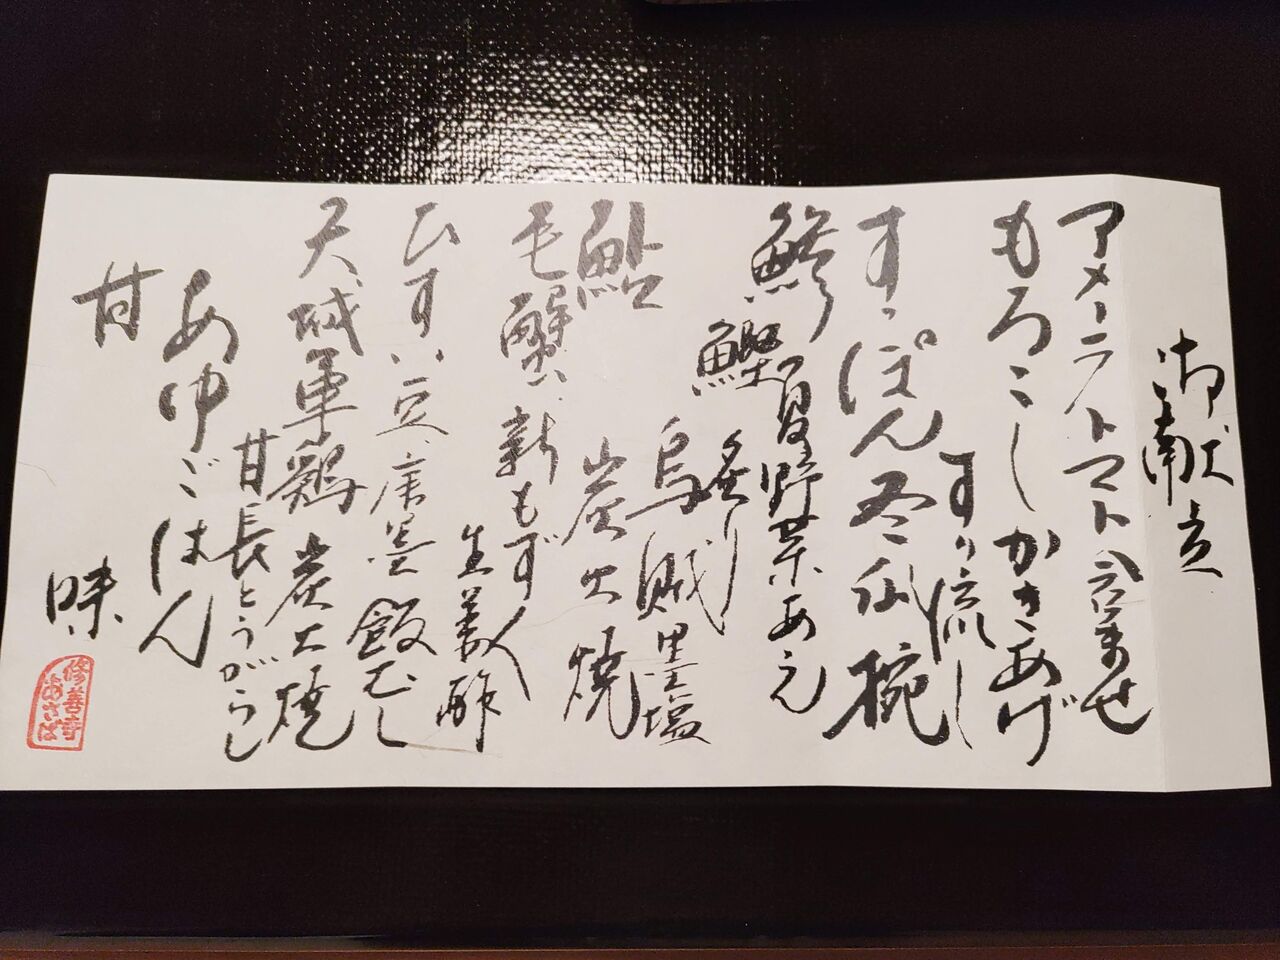 御献立
アメーラトマト合ませ
もろこしかきあげ
すり流し
すっぽん冬瓜椀
鯵夏野菜あえ
鰹炙り
烏賊墨塩
鮎炭火焼
毛蟹新もずく
生姜酢
ひすい豆唐墨飯むし
天城軍鶏炭火焼
甘長とうがらし
あゆごはん
甘味
修善寺
あさば